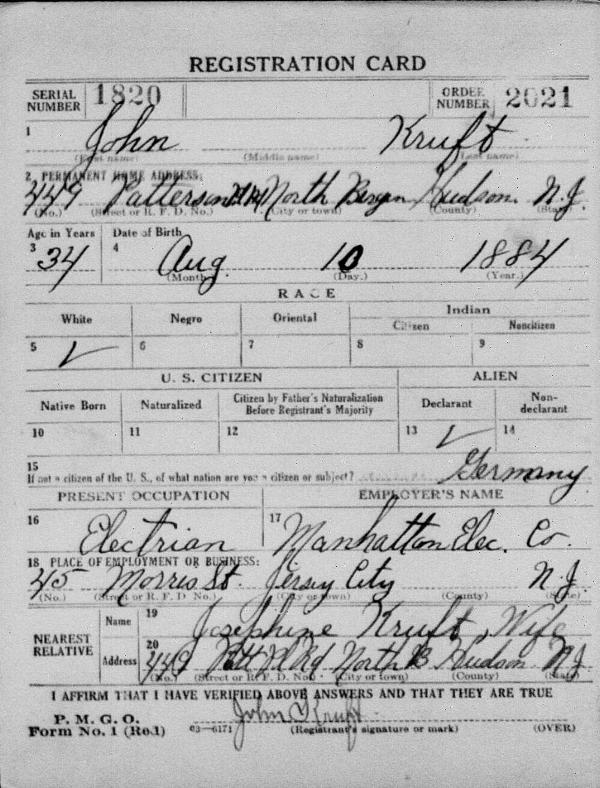 REGISTRATION CARD
SERIAL NUMBER 1820 ORDER NUMBER 2021
1 John Kruft
(First name) (Middle name) (Last name)
2 PERMANENT HOME ADDRESS:
449 Patterson Pl Rd North Bergen Hudson N.J.
(No.) (Street or R. F. D. No.) (City or town) (County) (State)
Age in Years Date of Birth
3 34 4 Aug. 10 1884
(Month) (Day.) (Year.)
RACE
White Negro Oriental Indian
Citizen Noncitizen
5 ✓ 6 7 8 9
U. S. CITIZEN ALIEN
Native Born Naturalized Citizen by Father's Naturalization Before Registrant's Majority Declarant Non-declarant
10 11 12 13 ✓ 14
15
If not a citizen of the U. S., of what nation are you a citizen or subject? Germany
PRESENT OCCUPATION EMPLOYER'S NAME
16 Electrian 17 Manhattan Elec. Co.
18 PLACE OF EMPLOYMENT OR BUSINESS:
45 Morris St. Jersey City N.J.
(No.) (Street or R. F. D. No.) (City or town) (County) (State)
NEAREST RELATIVE Name 19 Josephine Kruft, Wife
Address 20 449 Patt Pl Rd North B Hudson NJ
(No.) (Street or R. F. D. No.) (City or town) (County) (State)
I AFFIRM THAT I HAVE VERIFIED ABOVE ANSWERS AND THAT THEY ARE TRUE
P. M. G. O.
Form No. 1 (Red) 03—6171 John Kruft
(Registrant's signature or mark) (OVER)